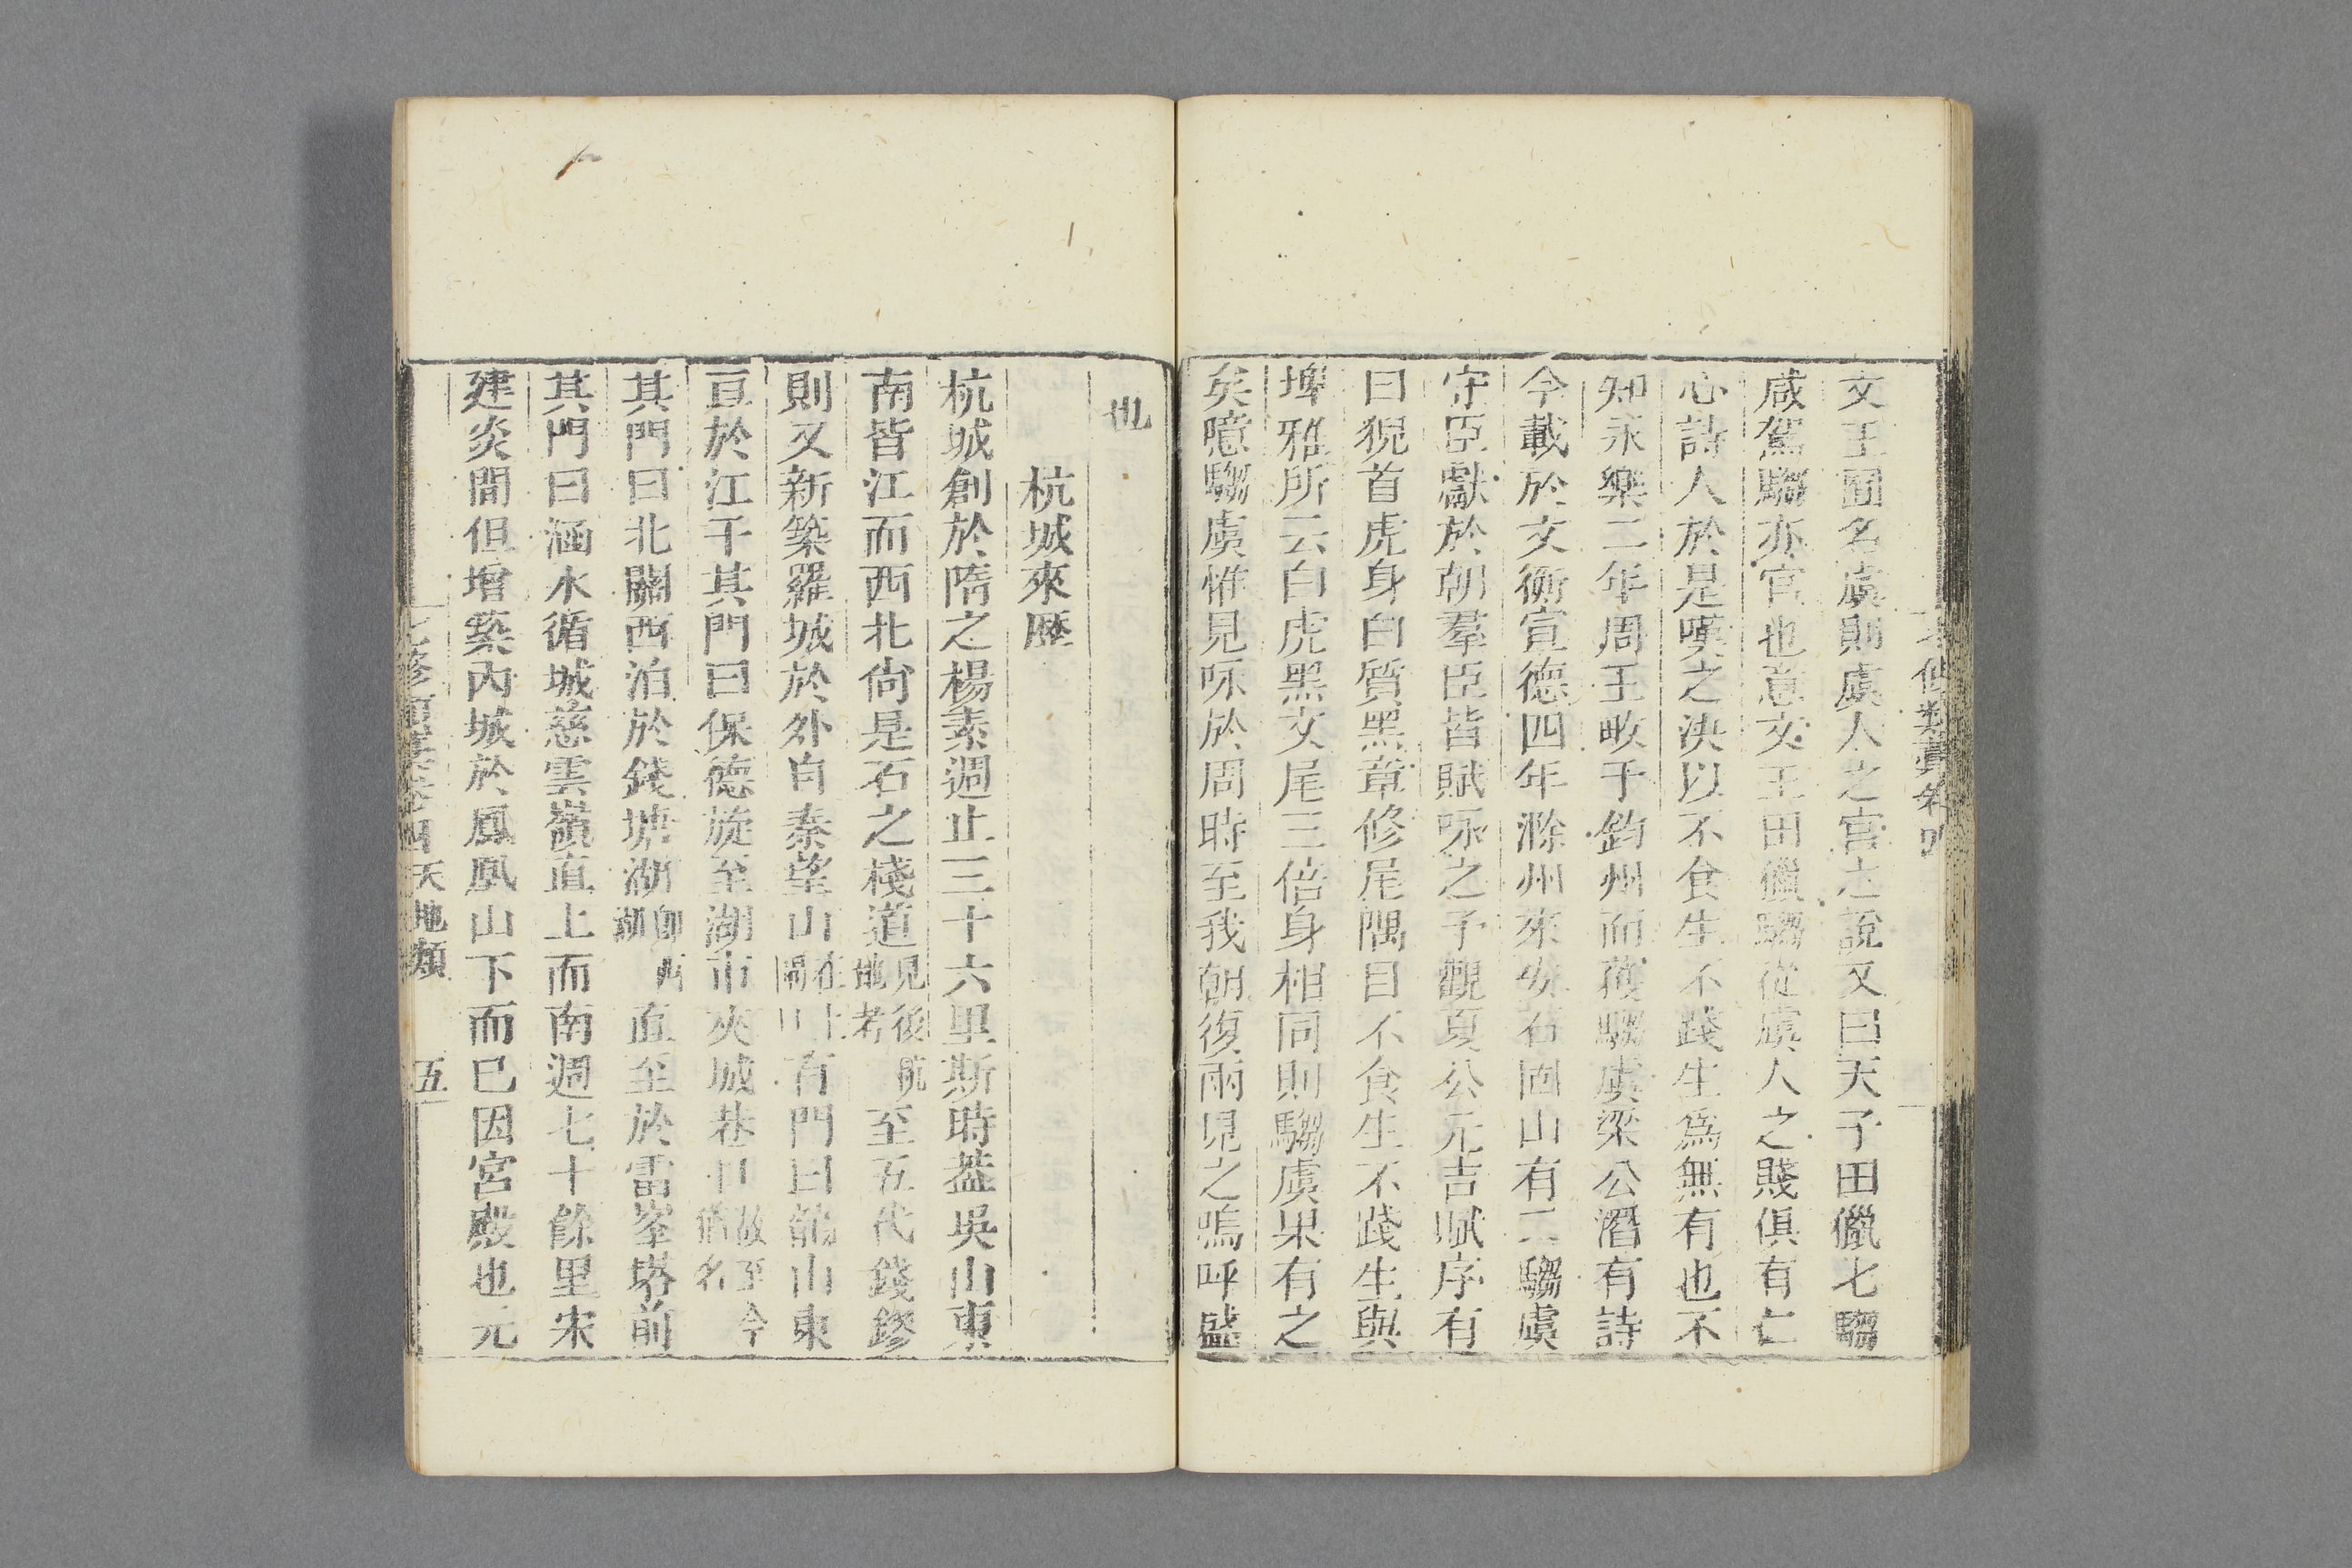 文王囿名虞則虞人之官之說又曰天子田獵七騶
咸駕騶亦官也意文王田獵騶從虞人之賤俱有仁
心詩人於是嘆之決以不食生不踐生爲無有也不
知永樂二年周王畋于鈞州而獲騶虞梁公潛有詩
今載於文衡宣德四年滁州來安石固山有二騶虞
守臣獻於朝羣臣皆賦咏之予觀夏公元吉賦序有
曰猊首虎身白質黑章修尾隅目不食生不踐生與
埤雅所云白虎黑文尾三倍身相同則騶虞果有之
矣噫騶虞惟見咏於周時至我朝復兩見之嗚呼盛
也
杭城來歷
杭城創於隋之楊素週止三十六里斯時葢吳山東
南皆江而西北尙是石之棧道見後杭地考至五代錢鏐
則又新築羅城於外自秦望山在上有門曰龍山東
亘於江干其門曰保德旋至湖市夾城巷故至今猶名
其門曰北關西泊於錢塘湖卽西湖直至於雷峯塔前
其門曰涵水循城慈雲嶺直上而南週七十餘里宋
建炎間但增築內城於鳳凰山下而已因宮殿也元
七修類藁卷四 天地類 五